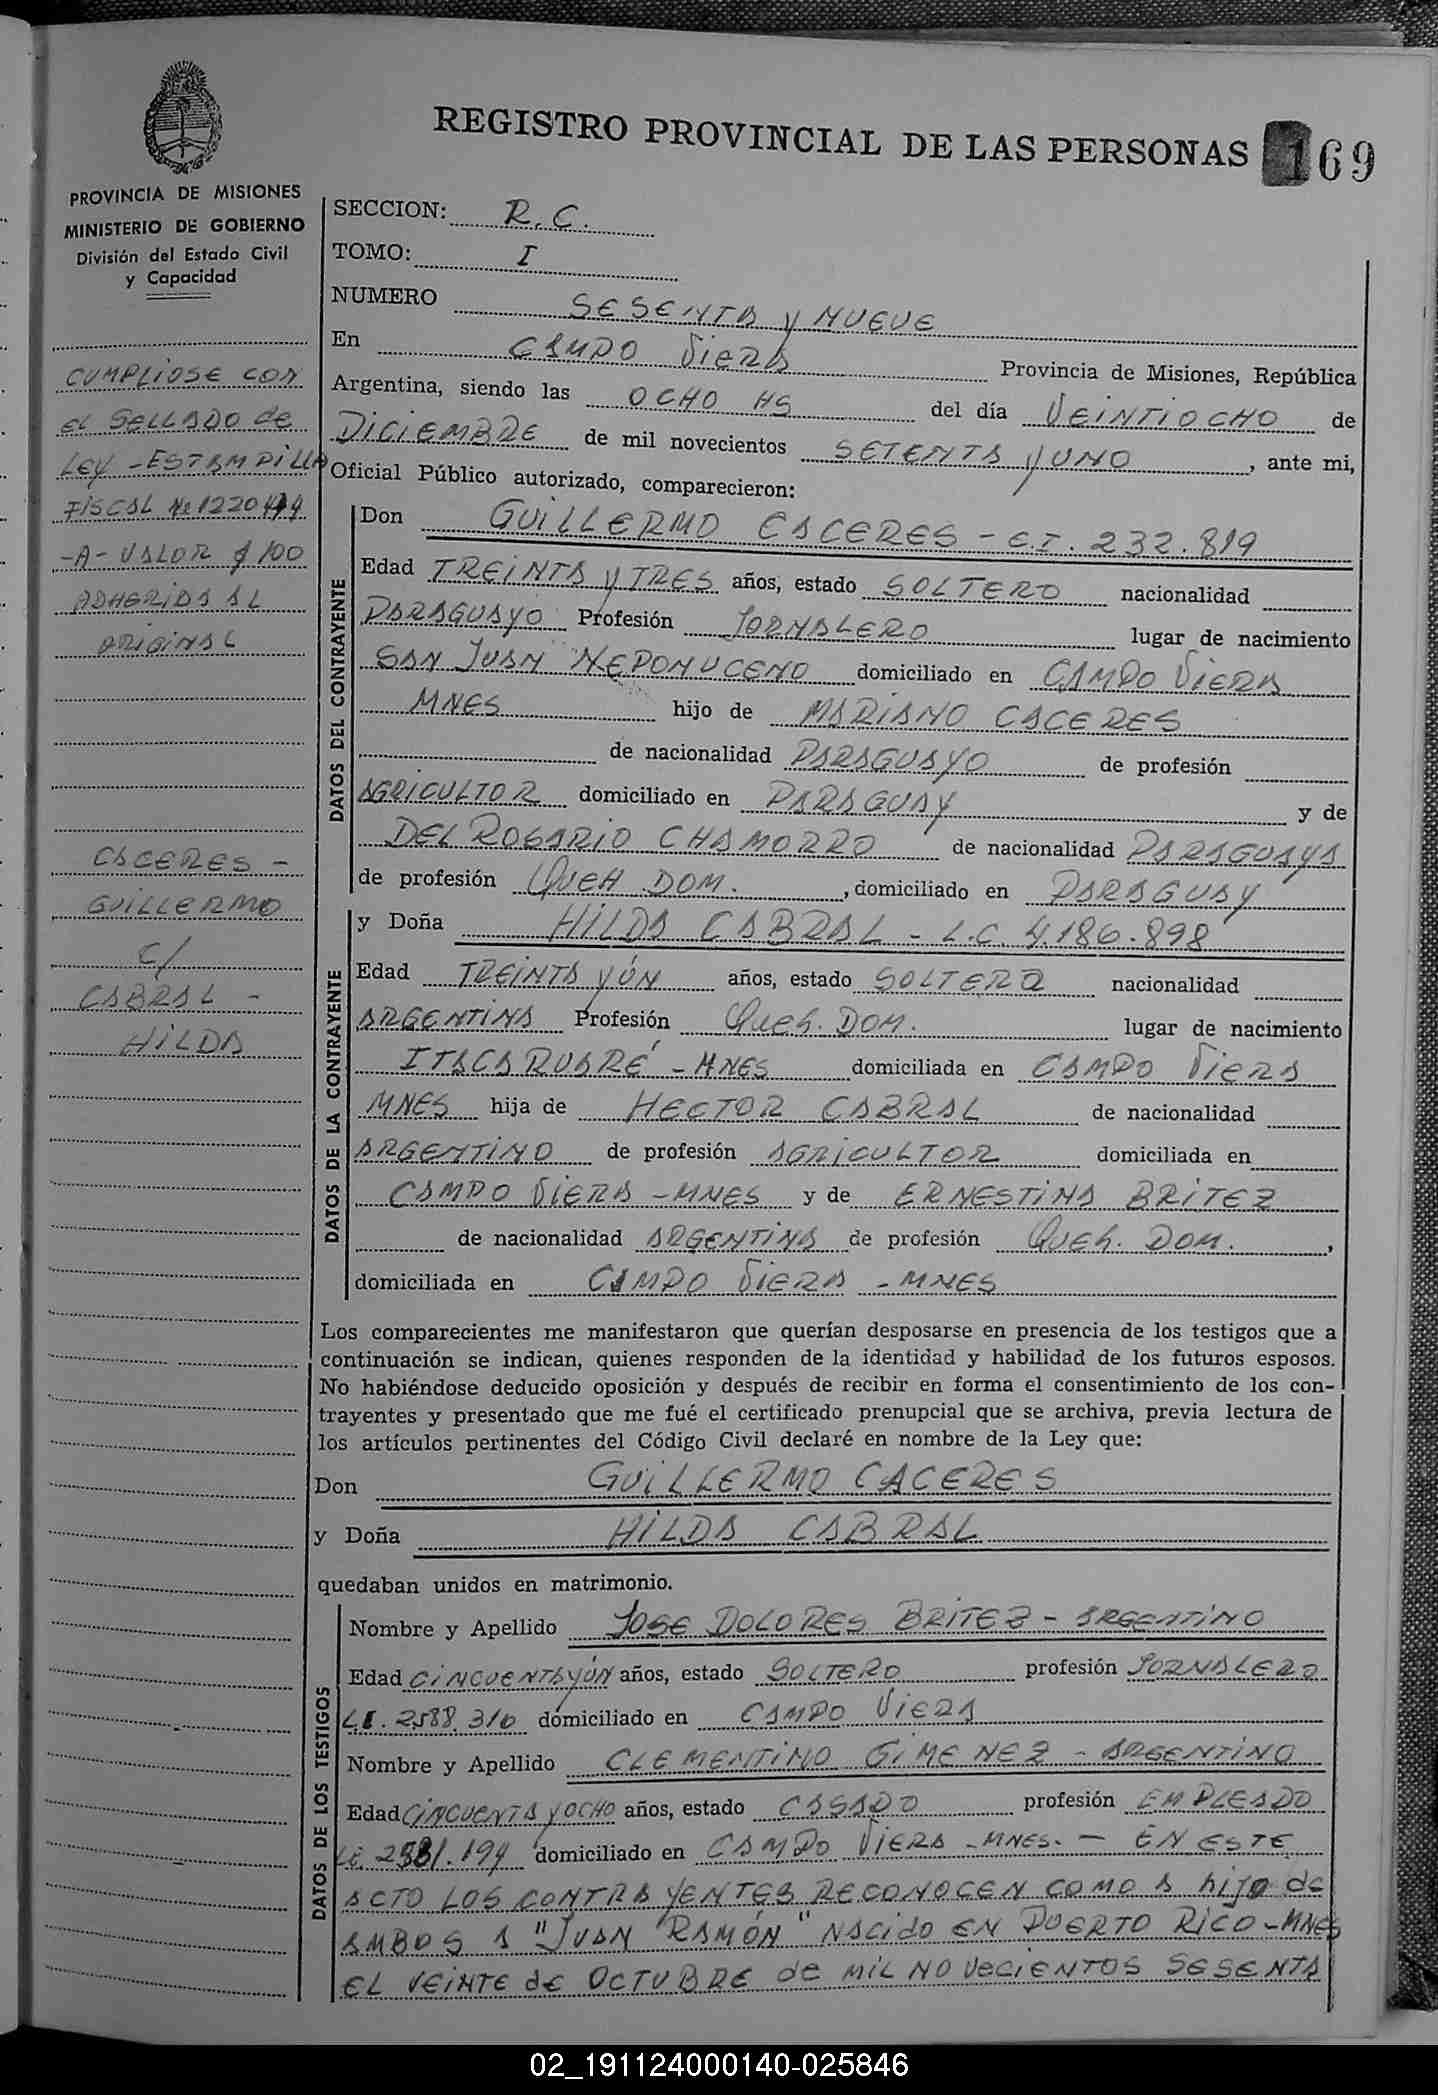 REGISTRO PROVINCIAL DE LAS PERSONAS 169
PROVINCIA DE MISIONES
MINISTERIO DE GOBIERNO
División del Estado Civil
y Capacidad
CUMPLIOSE CON
el SELLADO de
LEY - ESTAMPILLA
FISCAL Nº
-A- VALOR $ 100
ADHERIDA AL
ORIGINAL
CACERES -
GUILLERMO
C/
CABRAL -
HILDA
SECCION: R.C.
TOMO: I
NUMERO SESENTA y NUEVE
En CAMPO VIERA Provincia de Misiones, República
Argentina, siendo las OCHO HS del día VEINTIOCHO de
DICIEMBRE de mil novecientos SETENTA y UNO, ante mi,
Oficial Público autorizado, comparecieron:
DATOS DEL CONTRAYENTE
Don GUILLERMO CACERES - C.I. 232.819
Edad TREINTA y TRES años, estado SOLTERO nacionalidad
PARAGUAYO Profesión JORNALERO lugar de nacimiento
SAN JUAN NEPOMUCENO domiciliado en CAMPO VIERA
MNES hijo de MARIANO CACERES
de nacionalidad PARAGUAYO de profesión
AGRICULTOR domiciliado en PARAGUAY y de
DEL ROSARIO CHAMORRO de nacionalidad PARAGUAYA
de profesión QUEH. DOM., domiciliado en PARAGUAY
DATOS DE LA CONTRAYENTE
y Doña HILDA CABRAL - L.C. 4.186.898
Edad TREINTA y ÚN años, estado SOLTERA nacionalidad
ARGENTINA Profesión Queh. DOM. lugar de nacimiento
ITACARUARÉ - MNES domiciliada en CAMPO VIERA
MNES hija de HECTOR CABRAL de nacionalidad
ARGENTINO de profesión AGRICULTOR domiciliada en
CAMPO VIERA - MNES y de ERNESTINA BRITEZ
de nacionalidad ARGENTINA de profesión Queh. DOM.,
domiciliada en CAMPO VIERA - MNES
Los comparecientes me manifestaron que querían desposarse en presencia de los testigos que a
continuación se indican, quienes responden de la identidad y habilidad de los futuros esposos.
No habiéndose deducido oposición y después de recibir en forma el consentimiento de los con-
trayentes y presentado que me fué el certificado prenupcial que se archiva, previa lectura de
los artículos pertinentes del Código Civil declaré en nombre de la Ley que:
Don GUILLERMO CACERES
y Doña HILDA CABRAL
quedaban unidos en matrimonio.
DATOS DE LOS TESTIGOS
Nombre y Apellido JOSE DOLORES BRITEZ - ARGENTINO
Edad CINCUENTA y ÚN años, estado SOLTERO profesión JORNALERO
L.E. 2588.316 domiciliado en CAMPO VIERA
Nombre y Apellido CLEMENTINO GIMENEZ - ARGENTINO
Edad CINCUENTA y OCHO años, estado CASADO profesión EMPLEADO
L.E. domiciliado en CAMPO VIERA - MNES. - EN ESTE
ACTO LOS CONTRAYENTES RECONOCEN COMO A hijo de
AMBOS A "JUAN RAMÓN" NACIDO EN PUERTO RICO - MNES
EL VEINTE de OCTUBRE de MIL NOVECIENTOS SESENTA
02_191124000140-025846